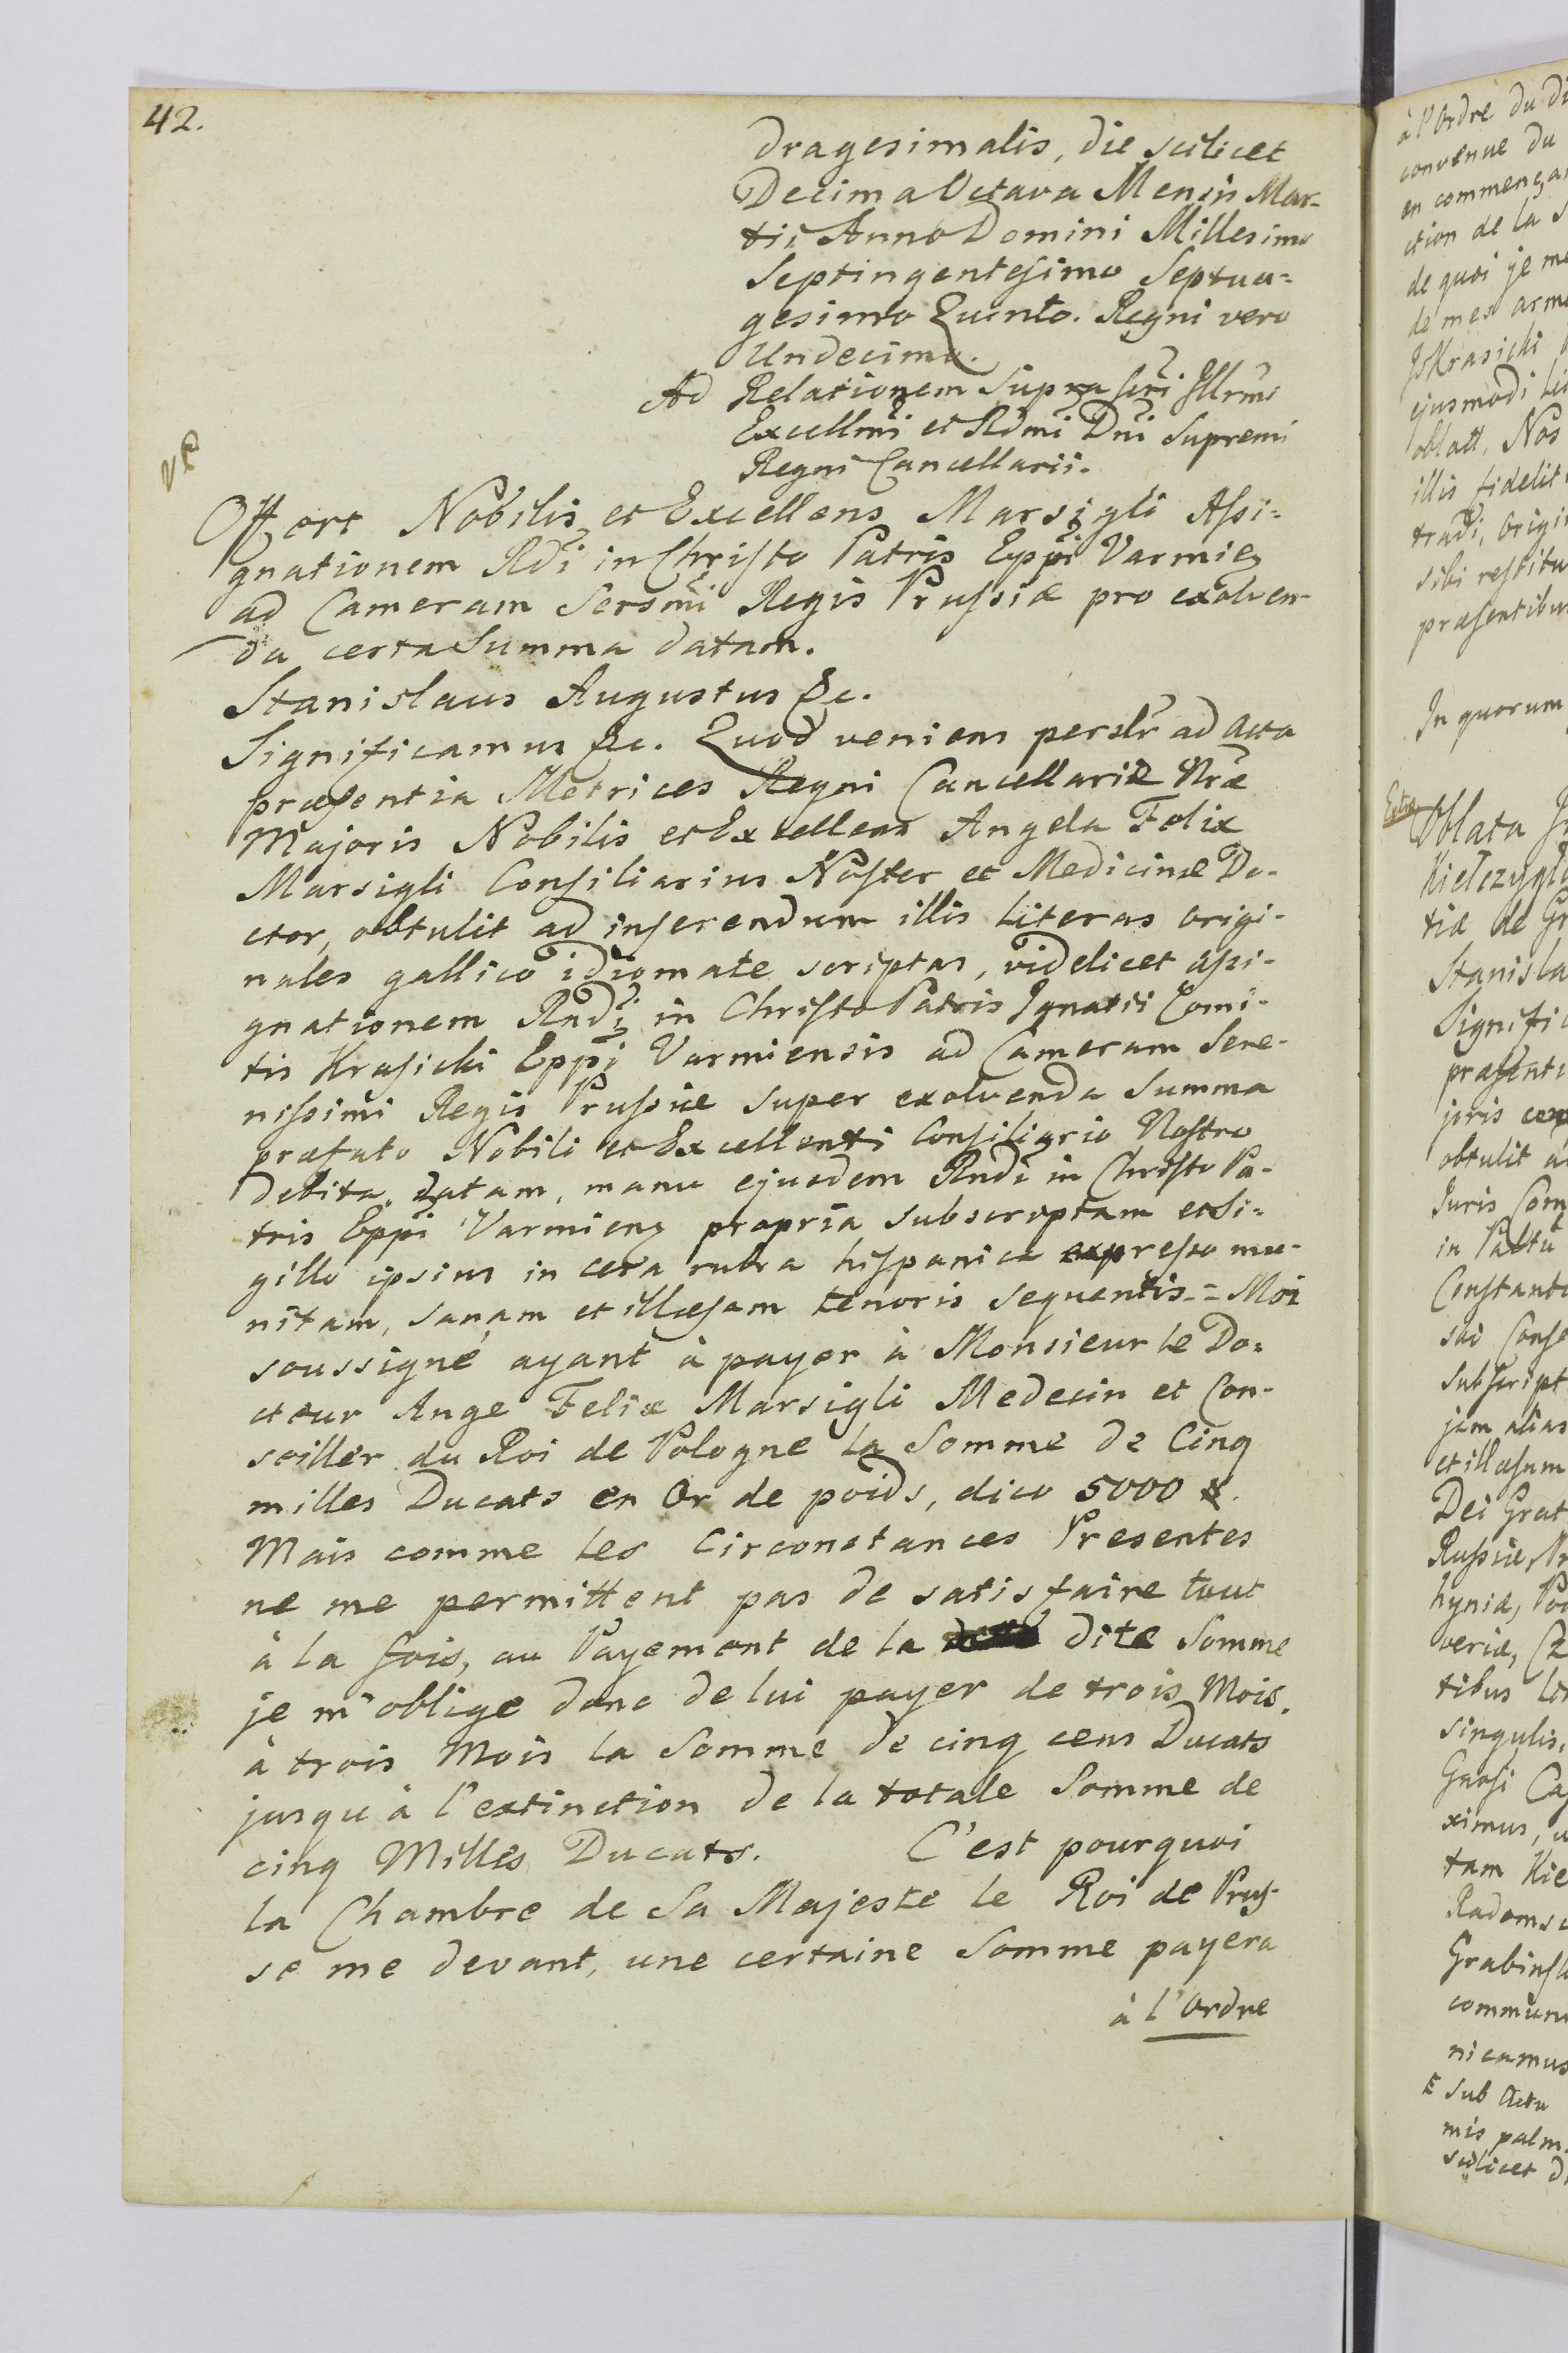 42.
dragesimalis, die scilicet
Decima Octava Mensis Mar-
tii Anno Domini Millesimo
Septingentesimo Septua-
gesimo Quinto. Regni vero
Undecimo.
Ad Relationem Supra scri Illrmi
Excellmi et Rdmi Dni Supremi
Regni Cancellarii.
Offert Nobilis et Excellens Marsigli Assi-
gnationem Rdi in Christo Patris Eppi Varmien
ad Cameram Sersmi Regis Prussiæ pro exolven-
da certa Summa datam.
Stanislaus Augustus &c.
Significamus &c. Quod veniens persolr ad Acta
præsentia Metrices Regni Cancellariæ Nræ
Majoris Nobilis et Excellens Angela Felix
Marsigli Consiliarius Noster et Medicinæ Do-
ctor, obtulit ad inserendum illis Literas origi-
nales gallico idiomate scriptas, videlicet assi-
gnationem Rndi in Christo Patris Ignatii Comi-
tis Krasicki Eppi Varmiensis ad Cameram Sere-
nissimi Regis Prussiæ super exolvenda Summa
præfato Nobili et Excellenti Consiliario Nostro
debita, datam, manu ejusdem Rndi in Christo Pa-
tris Eppi Varmien propria subscriptam et Si-
gillo ipsius in cera rubra hispanica expresso mu-
nitam, sanam et illæsam tenoris sequentis = Moi
soussigné ayant à payer à Monsieur le Do-
cteur Ange Felix Marsigli Medecin et Con-
seiller du Roi de Pologne la Somme de Cinq
milles Ducats en Or de poids, dico 5000 #.
Mais comme les Circonstances Presentes
ne me permittent pas de satisfaire tout
à la fois, au Payement de la dite Somme
je m'oblige donc de lui payer de trois Mois
à trois Mois la Somme de cinq cens Ducats
jusqu'à l'extinction de la totale Somme de
cinq Milles Ducats. C'est pourquoi
la Chambre de Sa Majeste le Roi de Prus-
se me devant, une certaine Somme payera
à l'Ordre
à l'Ordre du
convenue du
en commençan
ction de la
de quoi je me
de mes arme
Krasicki
ejusmodi
oblatt, Nos
illis fidelit
tradi, Origi
sibi restitu
præsentibus
In quorum
Oblata
tiæ de Gr
Stanisla
Signific
præsenti
joris
obtulit a
Juris Com
in
Constant
sui Conse
Subscript
jam alias
et illæsum
Dei Grat
Russiæ, Pr
hyniæ, Pod
veriæ, Cz
tibus
singulis,
Gnosi Ca
ximus, u
tam Kie
Radomsc
Grabinsk
commun
nicamus
E Sub Actu
mis palm
scilicet d